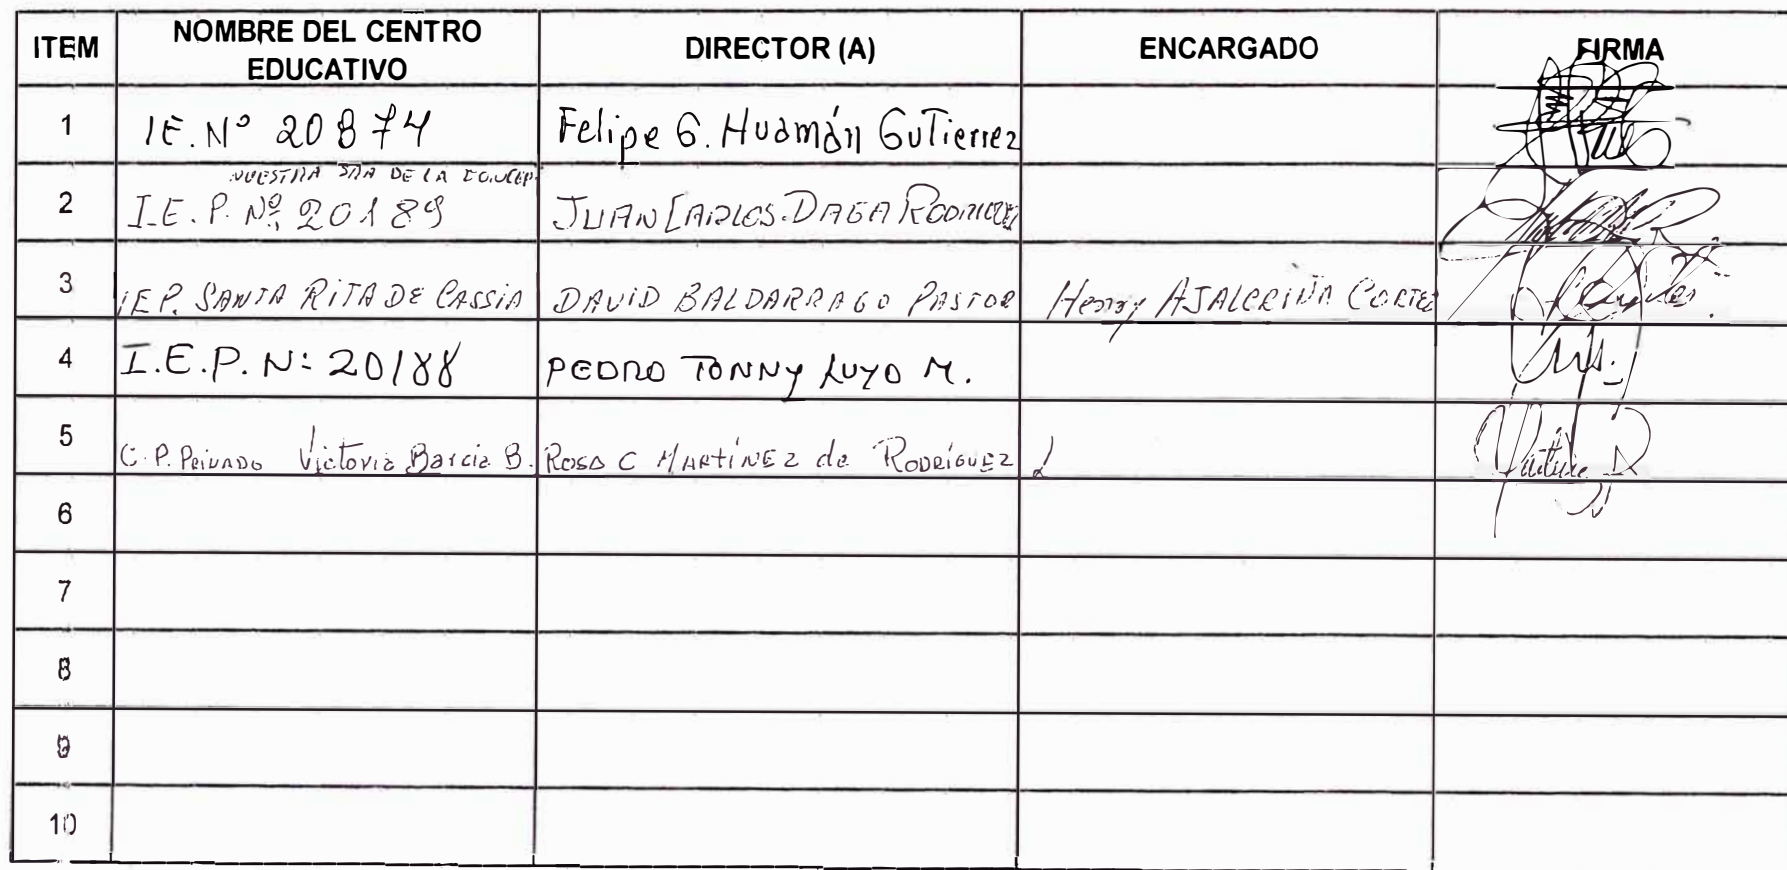 ITEM
NOMBRE DEL CENTRO
EDUCATIVO
DIRECTOR (A)
ENCARGADO
FIRMA
1
IE. N° 20874
Felipe G. Huamán GuTierrez
2
NUESTRA SRA DE LA CONCEP.
I.E.P. Nº 20189
JUAN CARLOS DAGA RODRIGUEZ
3
IEP. SANTA RITA DE CASSIA
DAVID BALDARRAGO PASTOR
Henry
4
I.E.P. N: 20188
PEDRO TONNY LUYO M.
5
C.P. PRIVADO Victoria Barcia B.
ROSA C MARTÍNEZ de RODRÍGUEZ
6
7
8
9
10